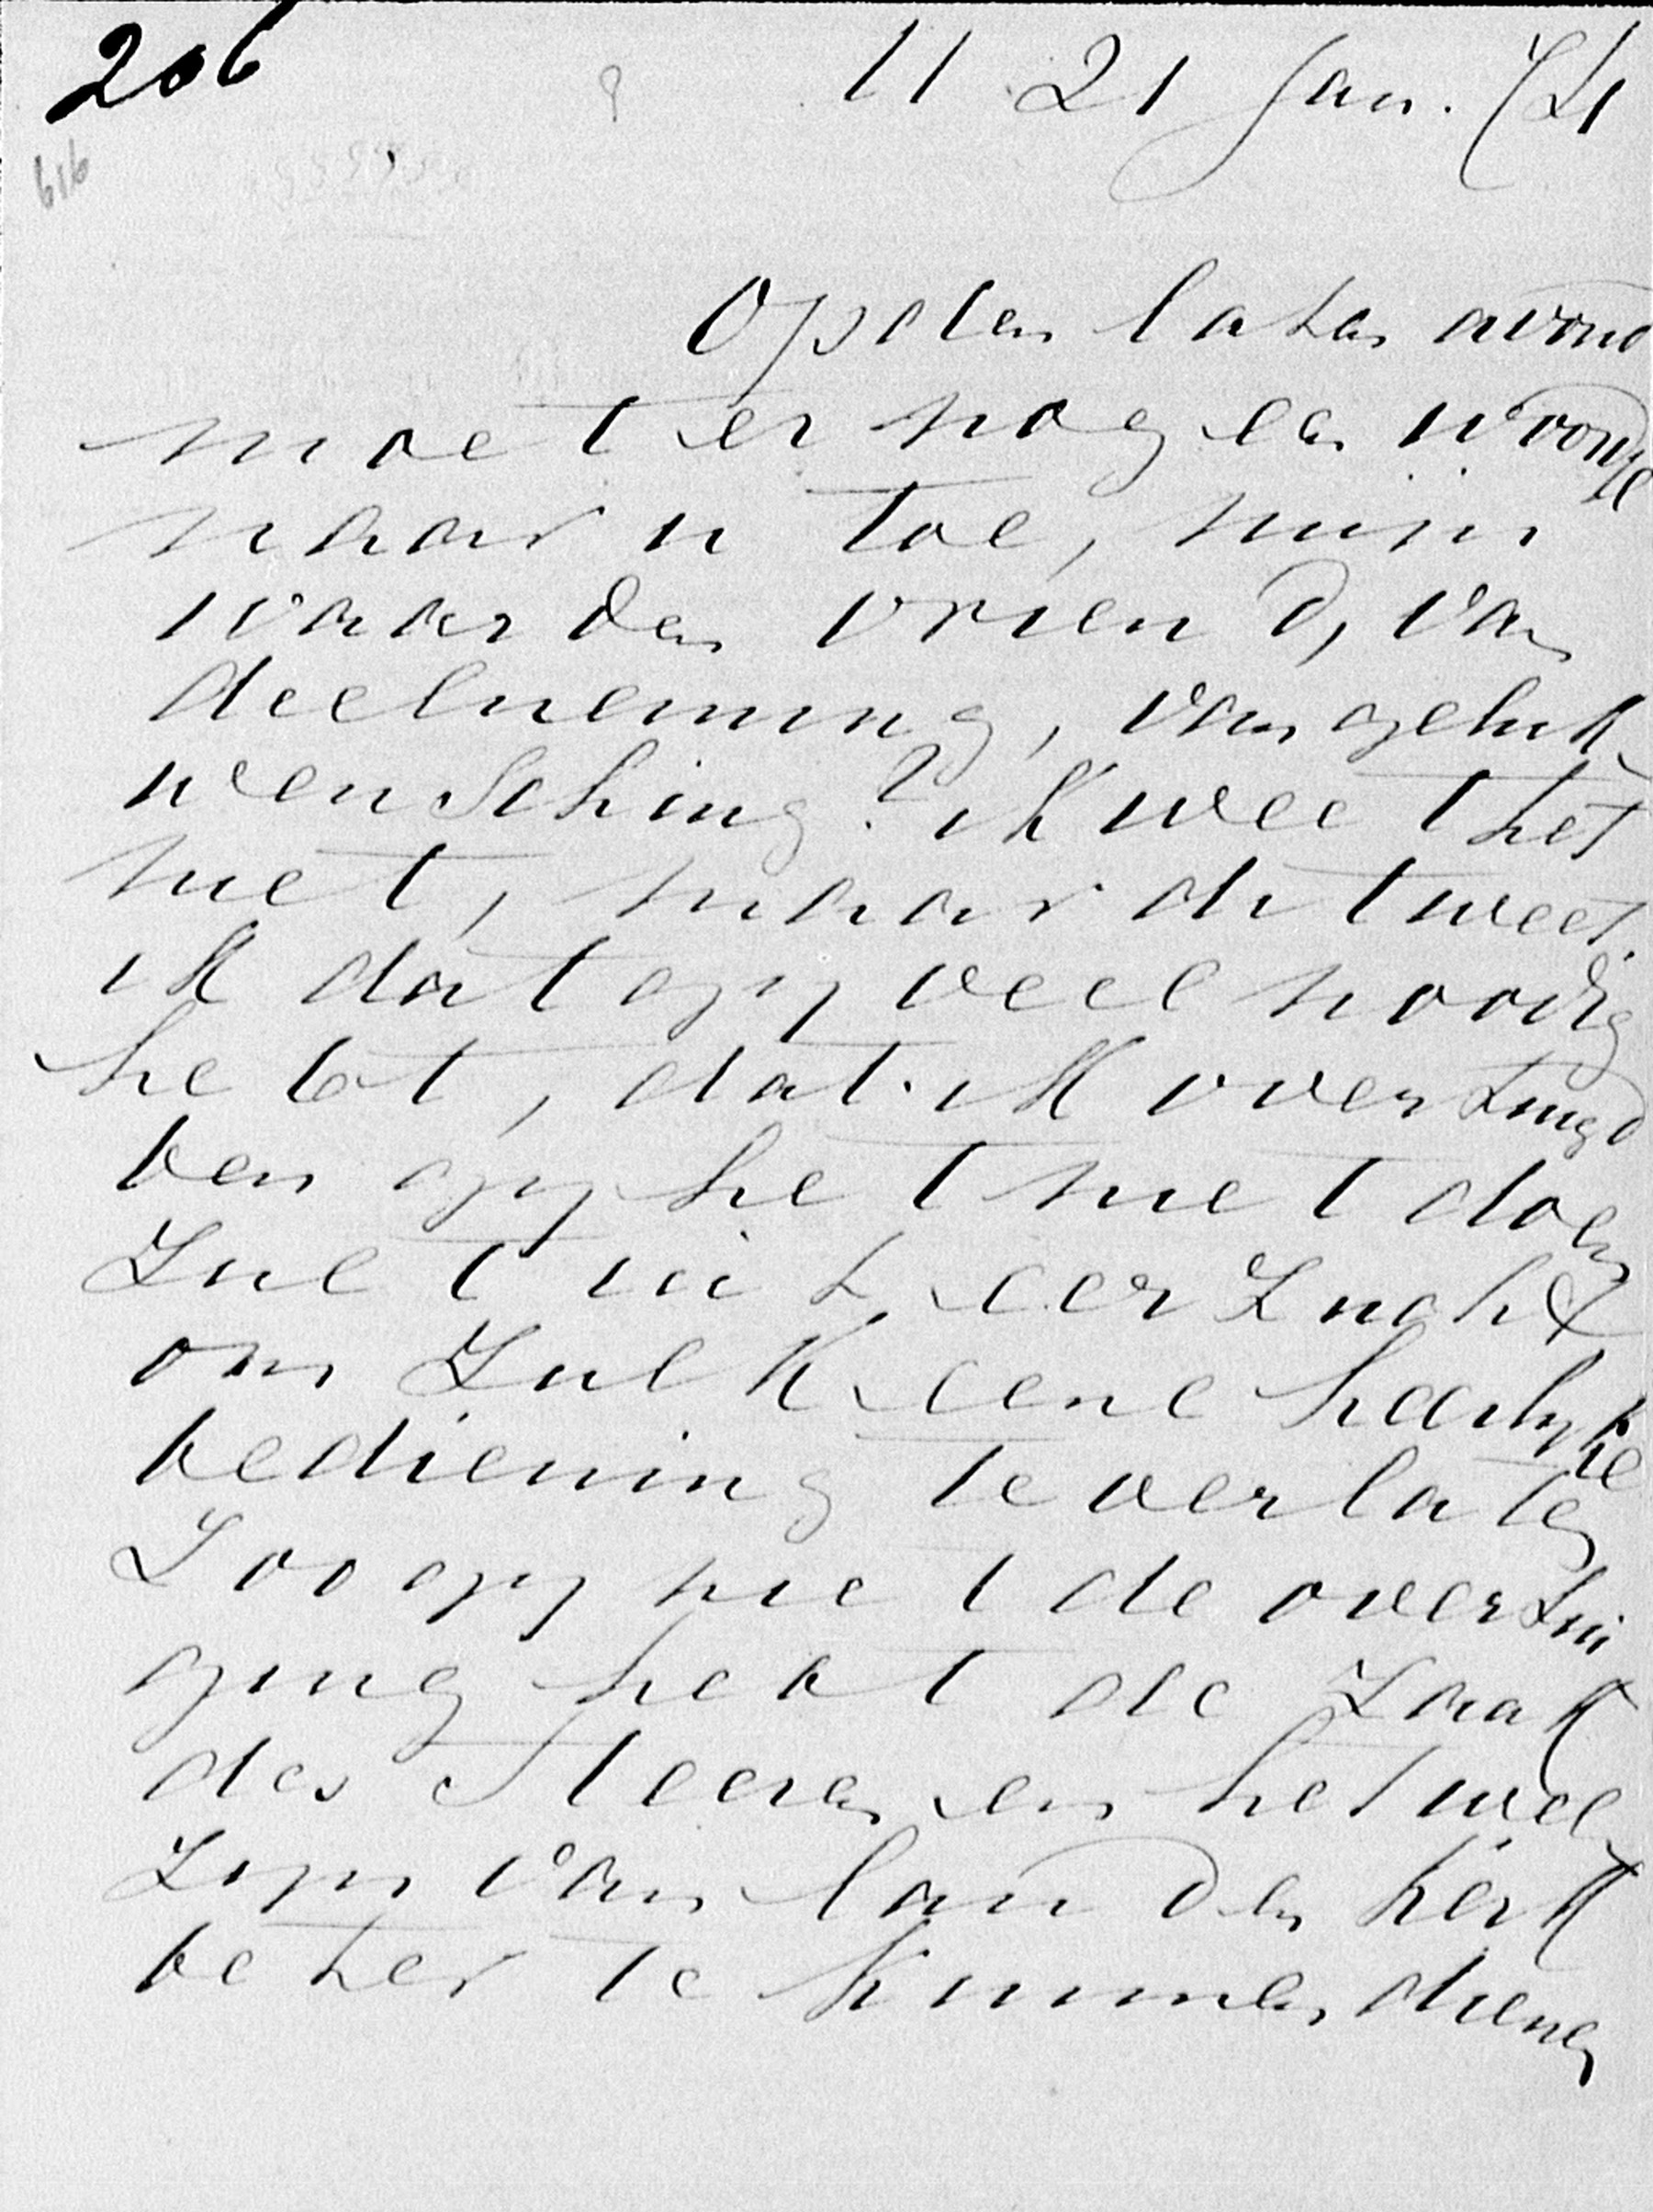 206 11 21 Jan. 74
616
Op den laten avond
moet er nog een woordje
naar u toe, mijn
waarden vriend, van
deelneming, van geluk
wensching? ik weet het
niet, maar dit weet
ik dat gij veel noodig
hebt, dat ik overtuigd
ben gij het niet doen
zult uit eerzucht
om zulk eene heerlijke
bediening te verlaten
Zoo gij niet de overtui
ging hebt de zaak
des Heeren en het wel
zijn van land en kerk
beter te kunnen dienen